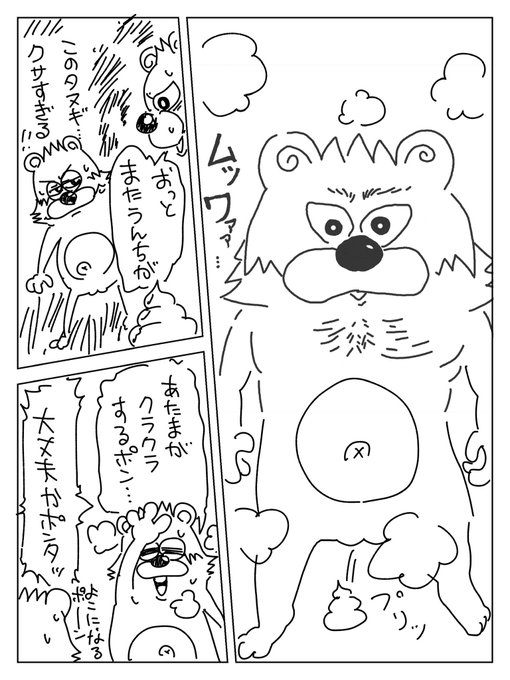 ムッワァァ…
プリッ
このタヌギ…
クサすぎる
!!
おっと
またうんちが
あたまが
クラクラ
するポン…
大丈夫かポンタッ
よこになる
ポーン